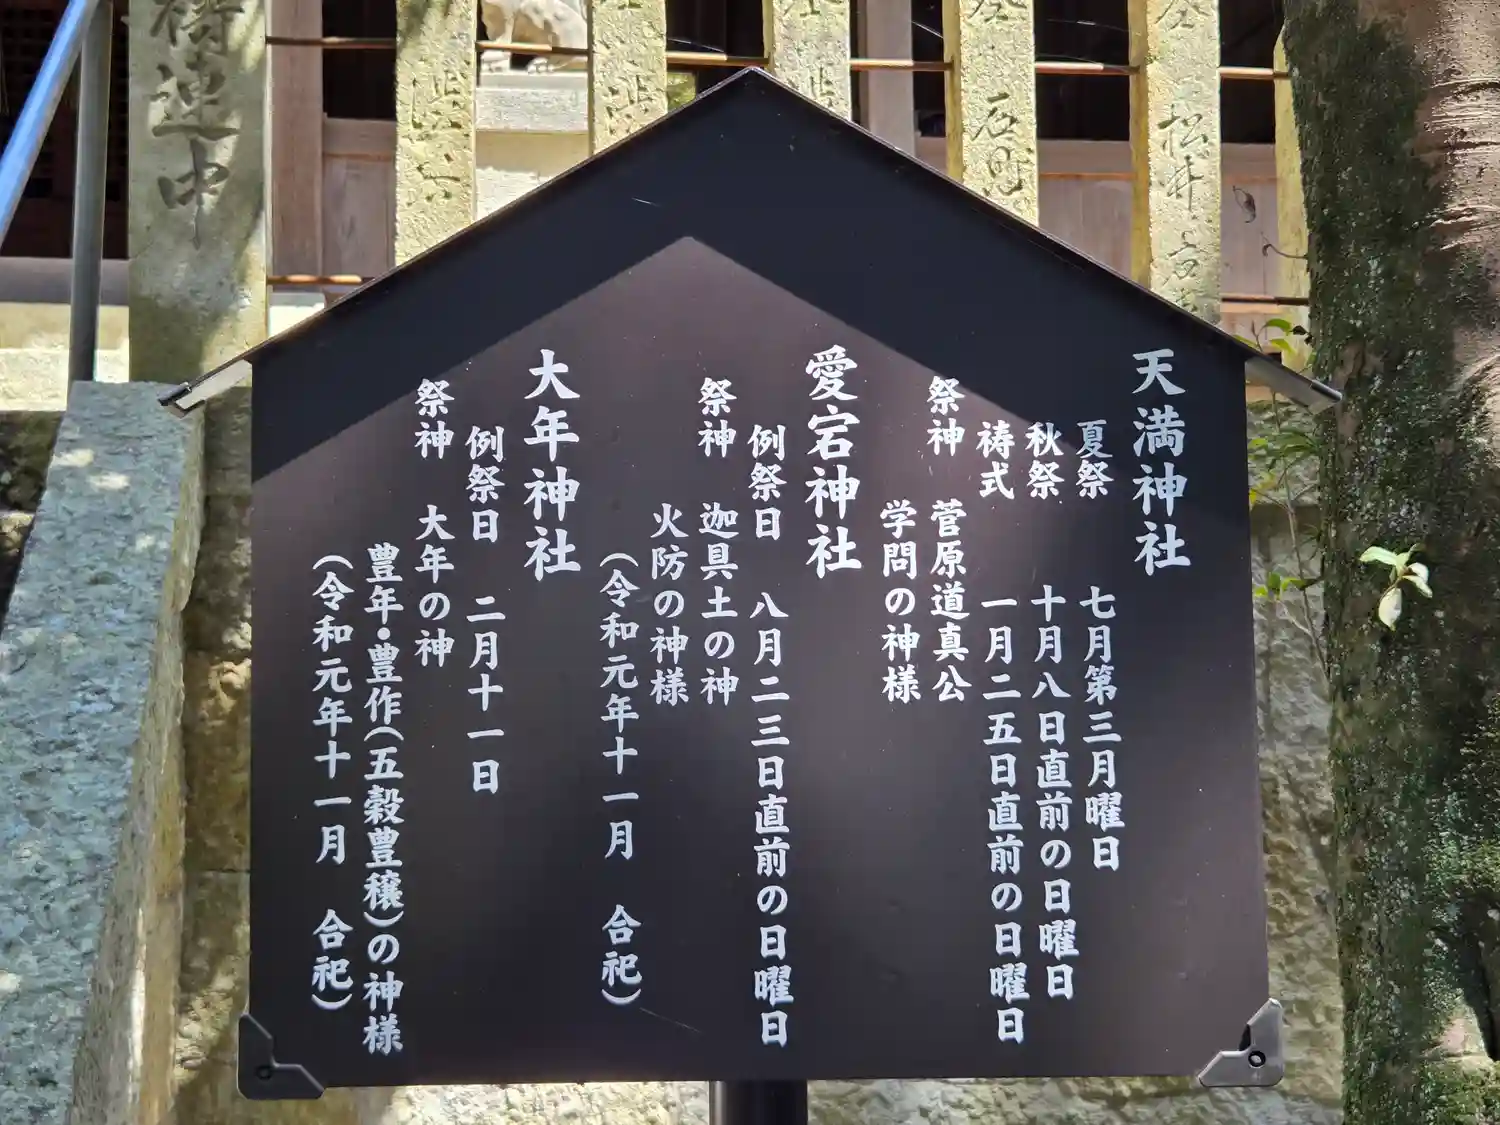 天満神社
夏祭 七月第三月曜日
秋祭 十月八日直前の日曜日
祷式 一月二五日直前の日曜日
祭神 菅原道真公
学問の神様
愛宕神社
例祭日 八月二三日直前の日曜日
祭神 迦具土の神
火防の神様
(令和元年十一月 合祀)
大年神社
例祭日 二月十一日
祭神 大年の神
豊年・豊作(五穀豊穣)の神様
(令和元年十一月 合祀)
松井
連中